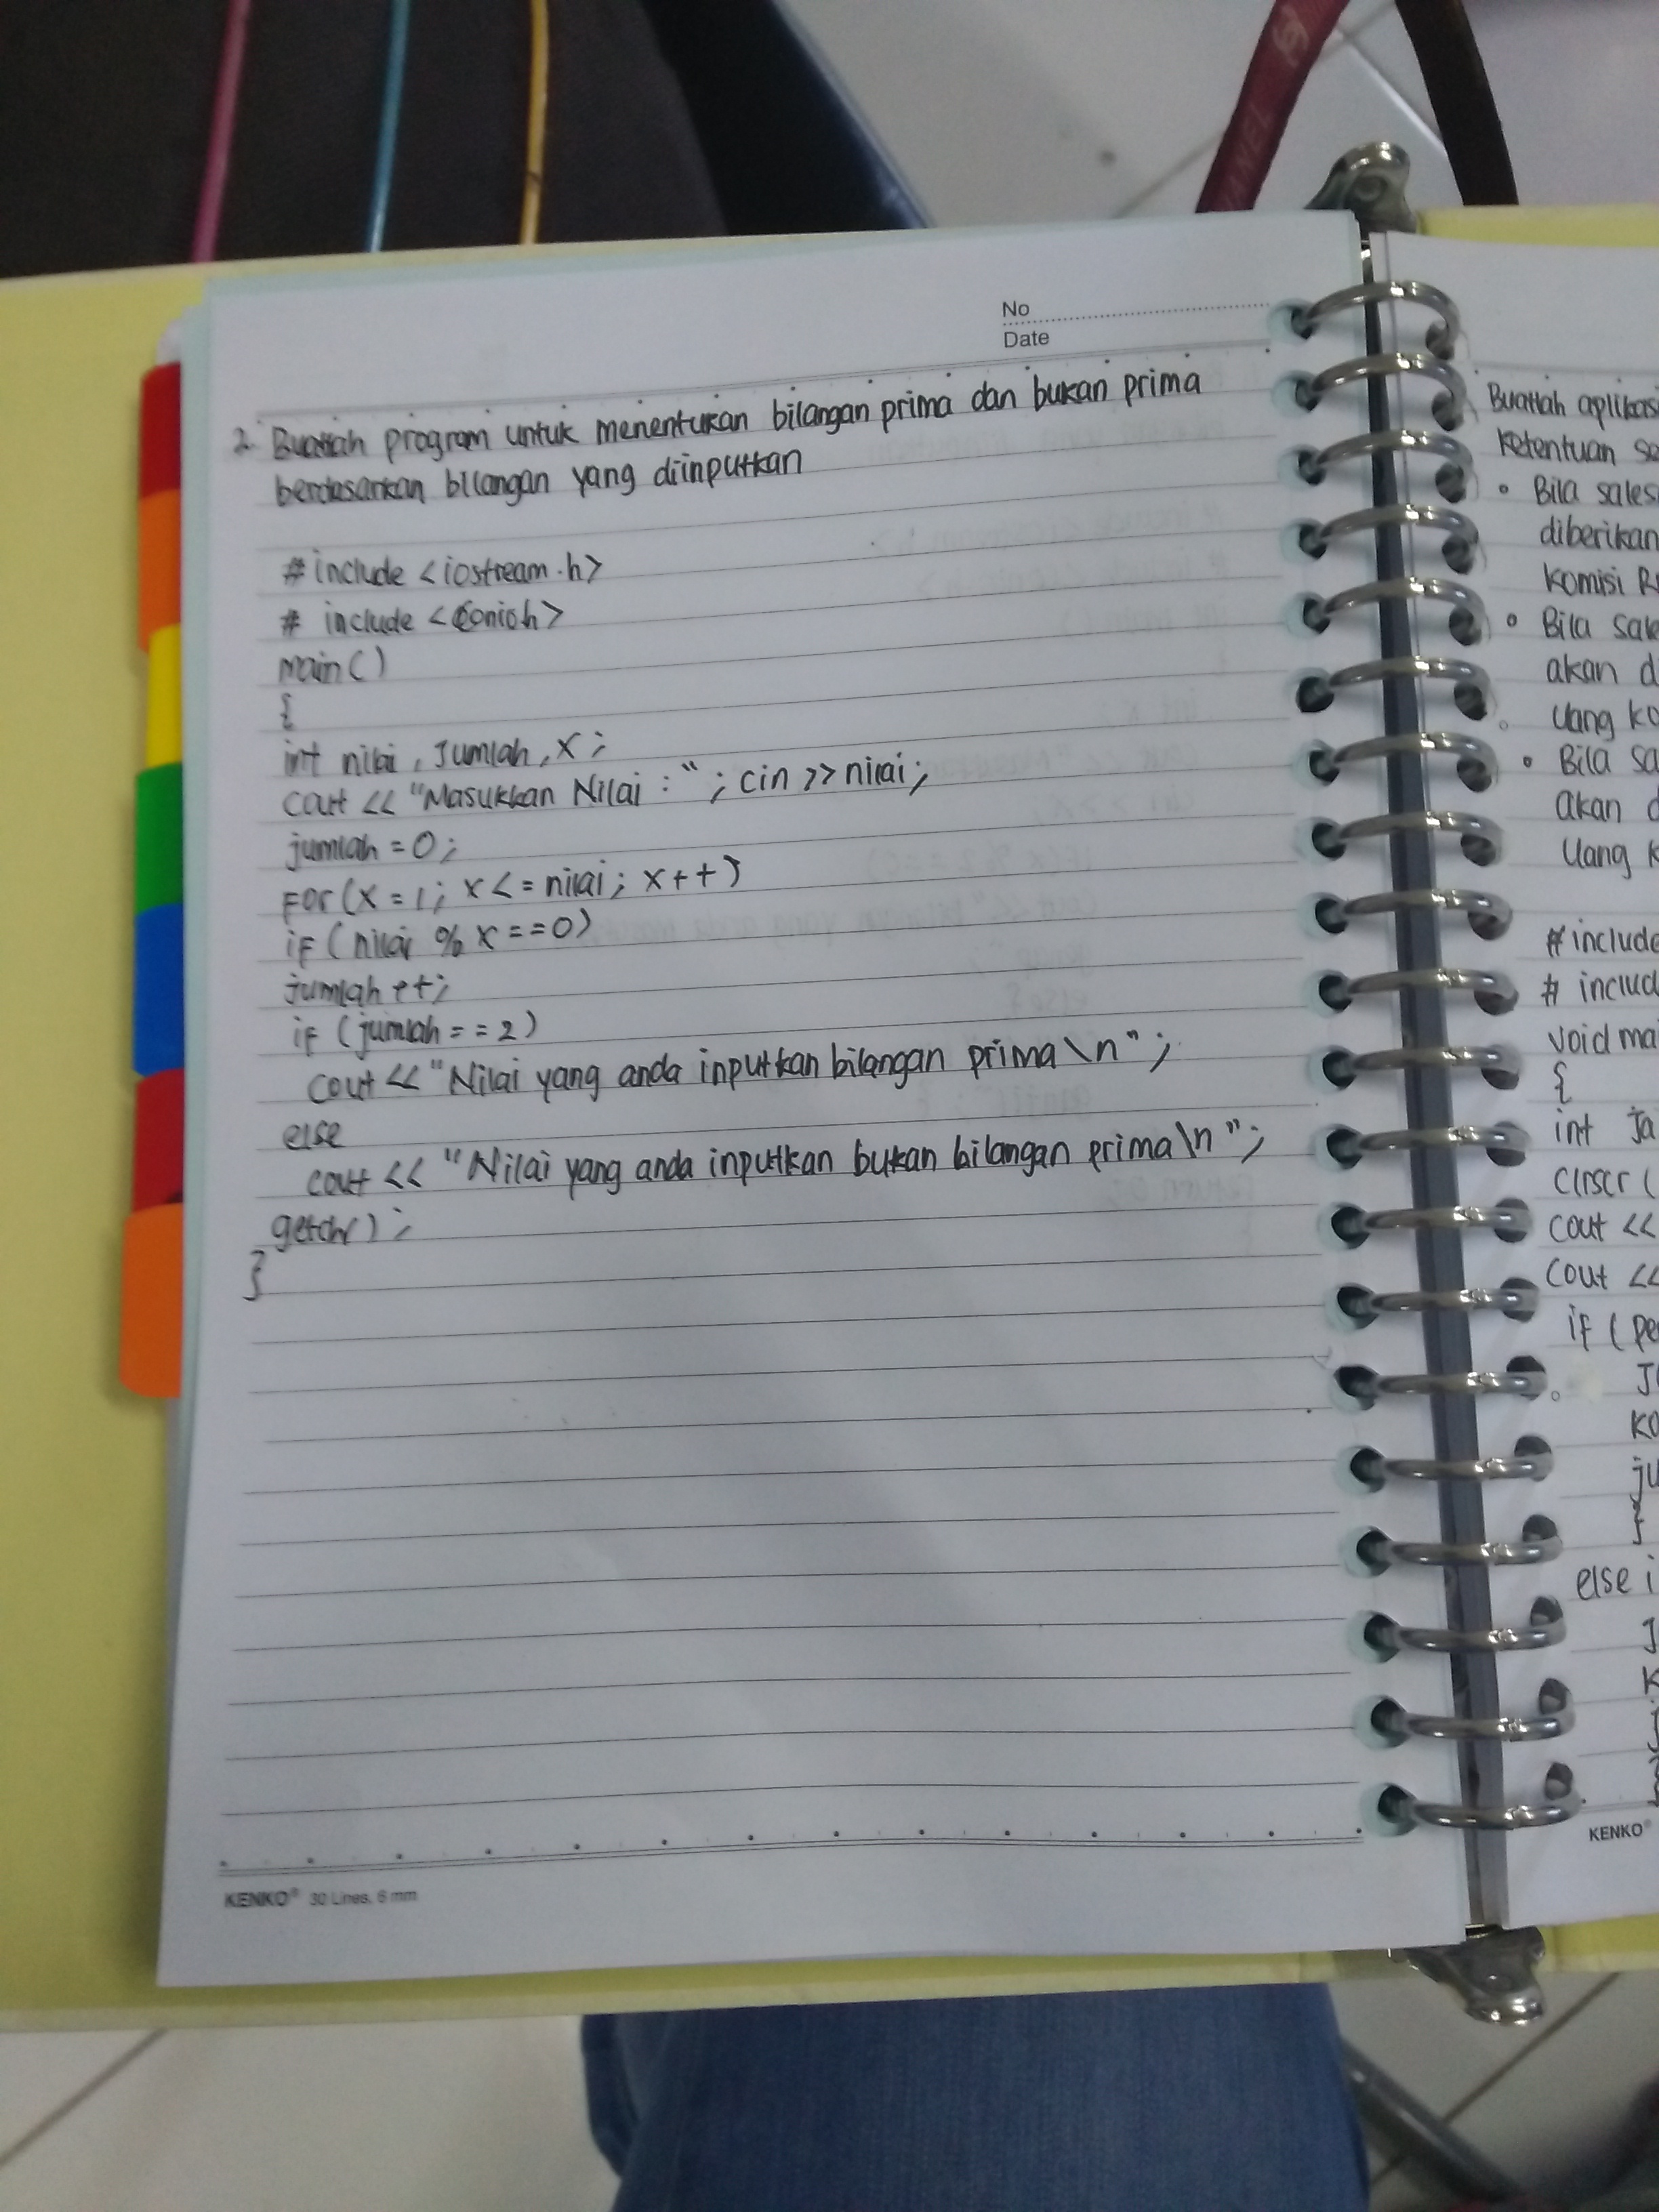 No
Date
2. Buatlah program untuk menentukan bilangan prima dan bukan prima
berdasarkan bilangan yang diinputkan
# include <iostream.h>
# include <Conio.h>
main()
{
int nilai, Jumlah, x;
cout << "Masukkan Nilai : "; cin >> nilai;
jumlah = 0;
For (x = 1; x <= nilai; x++)
if (nilai % x == 0)
jumlah ++;
if (jumlah == 2)
cout << "Nilai yang anda inputkan bilangan prima \n";
else
cout << "Nilai yang anda inputkan bukan bilangan prima \n";
getch();
}
KENKO® 30 Lines, 6 mm
Buatlah aplikasi
Ketentuan
• Bila sales
diberikan
komisi
• Bila
akan
Uang
• Bila
Akan
Uang
#include
#
void
{
int
clrscr (
cout <<
Cout <<
if (
}
else
KENKO®